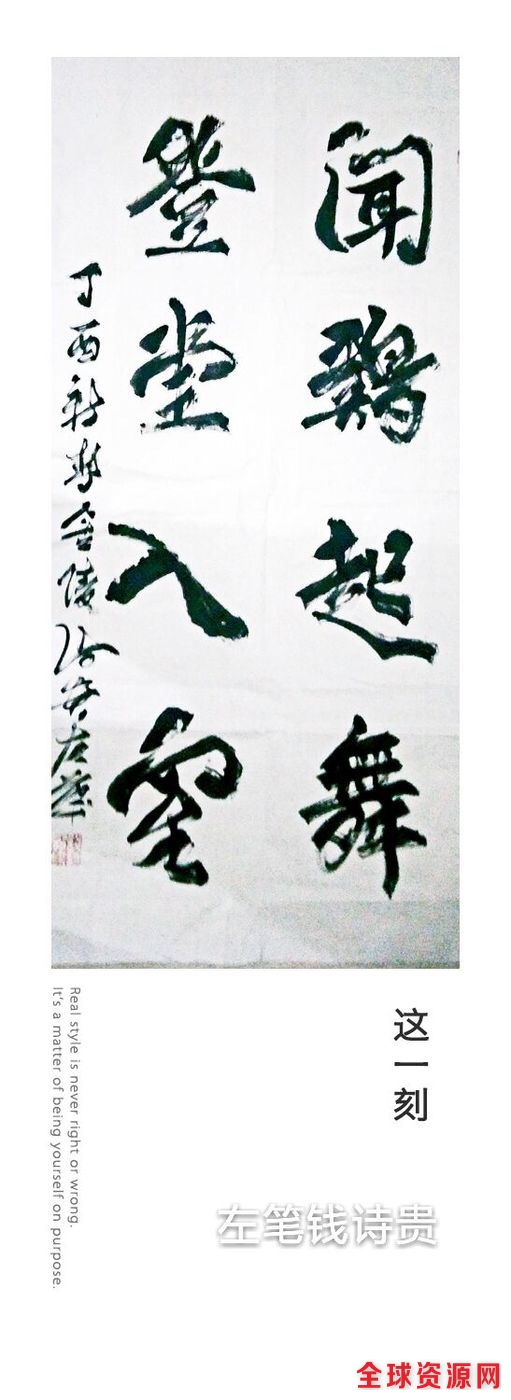 闻鷄起舞
登堂入室
丁酉新春金陵
左笔
这一刻
Real style is never right or wrong.
It's a matter of being yourself on purpose.
左笔钱诗贵
全球资源网